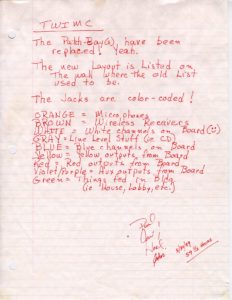 TWIMC
The Patch-Bay(s) have been
replaced! Yeah.
The new Layout is Listed on
The wall where the old List
used to be.
The Jacks are color-coded!
ORANGE = Microphones
BROWN = Wireless Receivers
WHITE = White channels on Board
GRAY = Line Level Stuff (ie CD)
BLUE = Blue channels, on Board
Yellow = Yellow outputs, from Board
Red = Red outputs from Board
Violet/Purple = Aux outputs from Board
Green = Things fed in Bldg.
(ie House, Lobby, etc.)